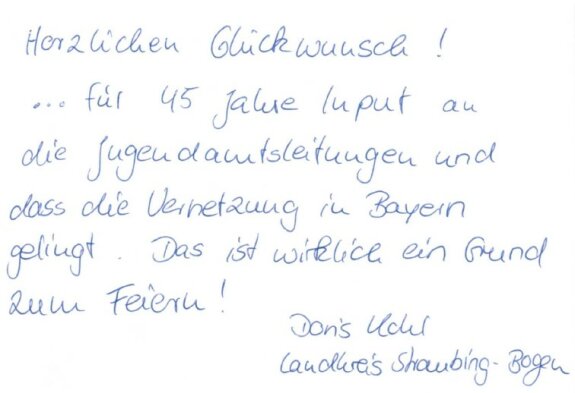 Herzlichen Glückwunsch!
... für 45 Jahre Input an
die Jugendamtsleitungen und
dass die Vernetzung in Bayern
gelingt. Das ist wirklich ein Grund
zum Feiern!
Doris
Landkreis Straubing-Bogen